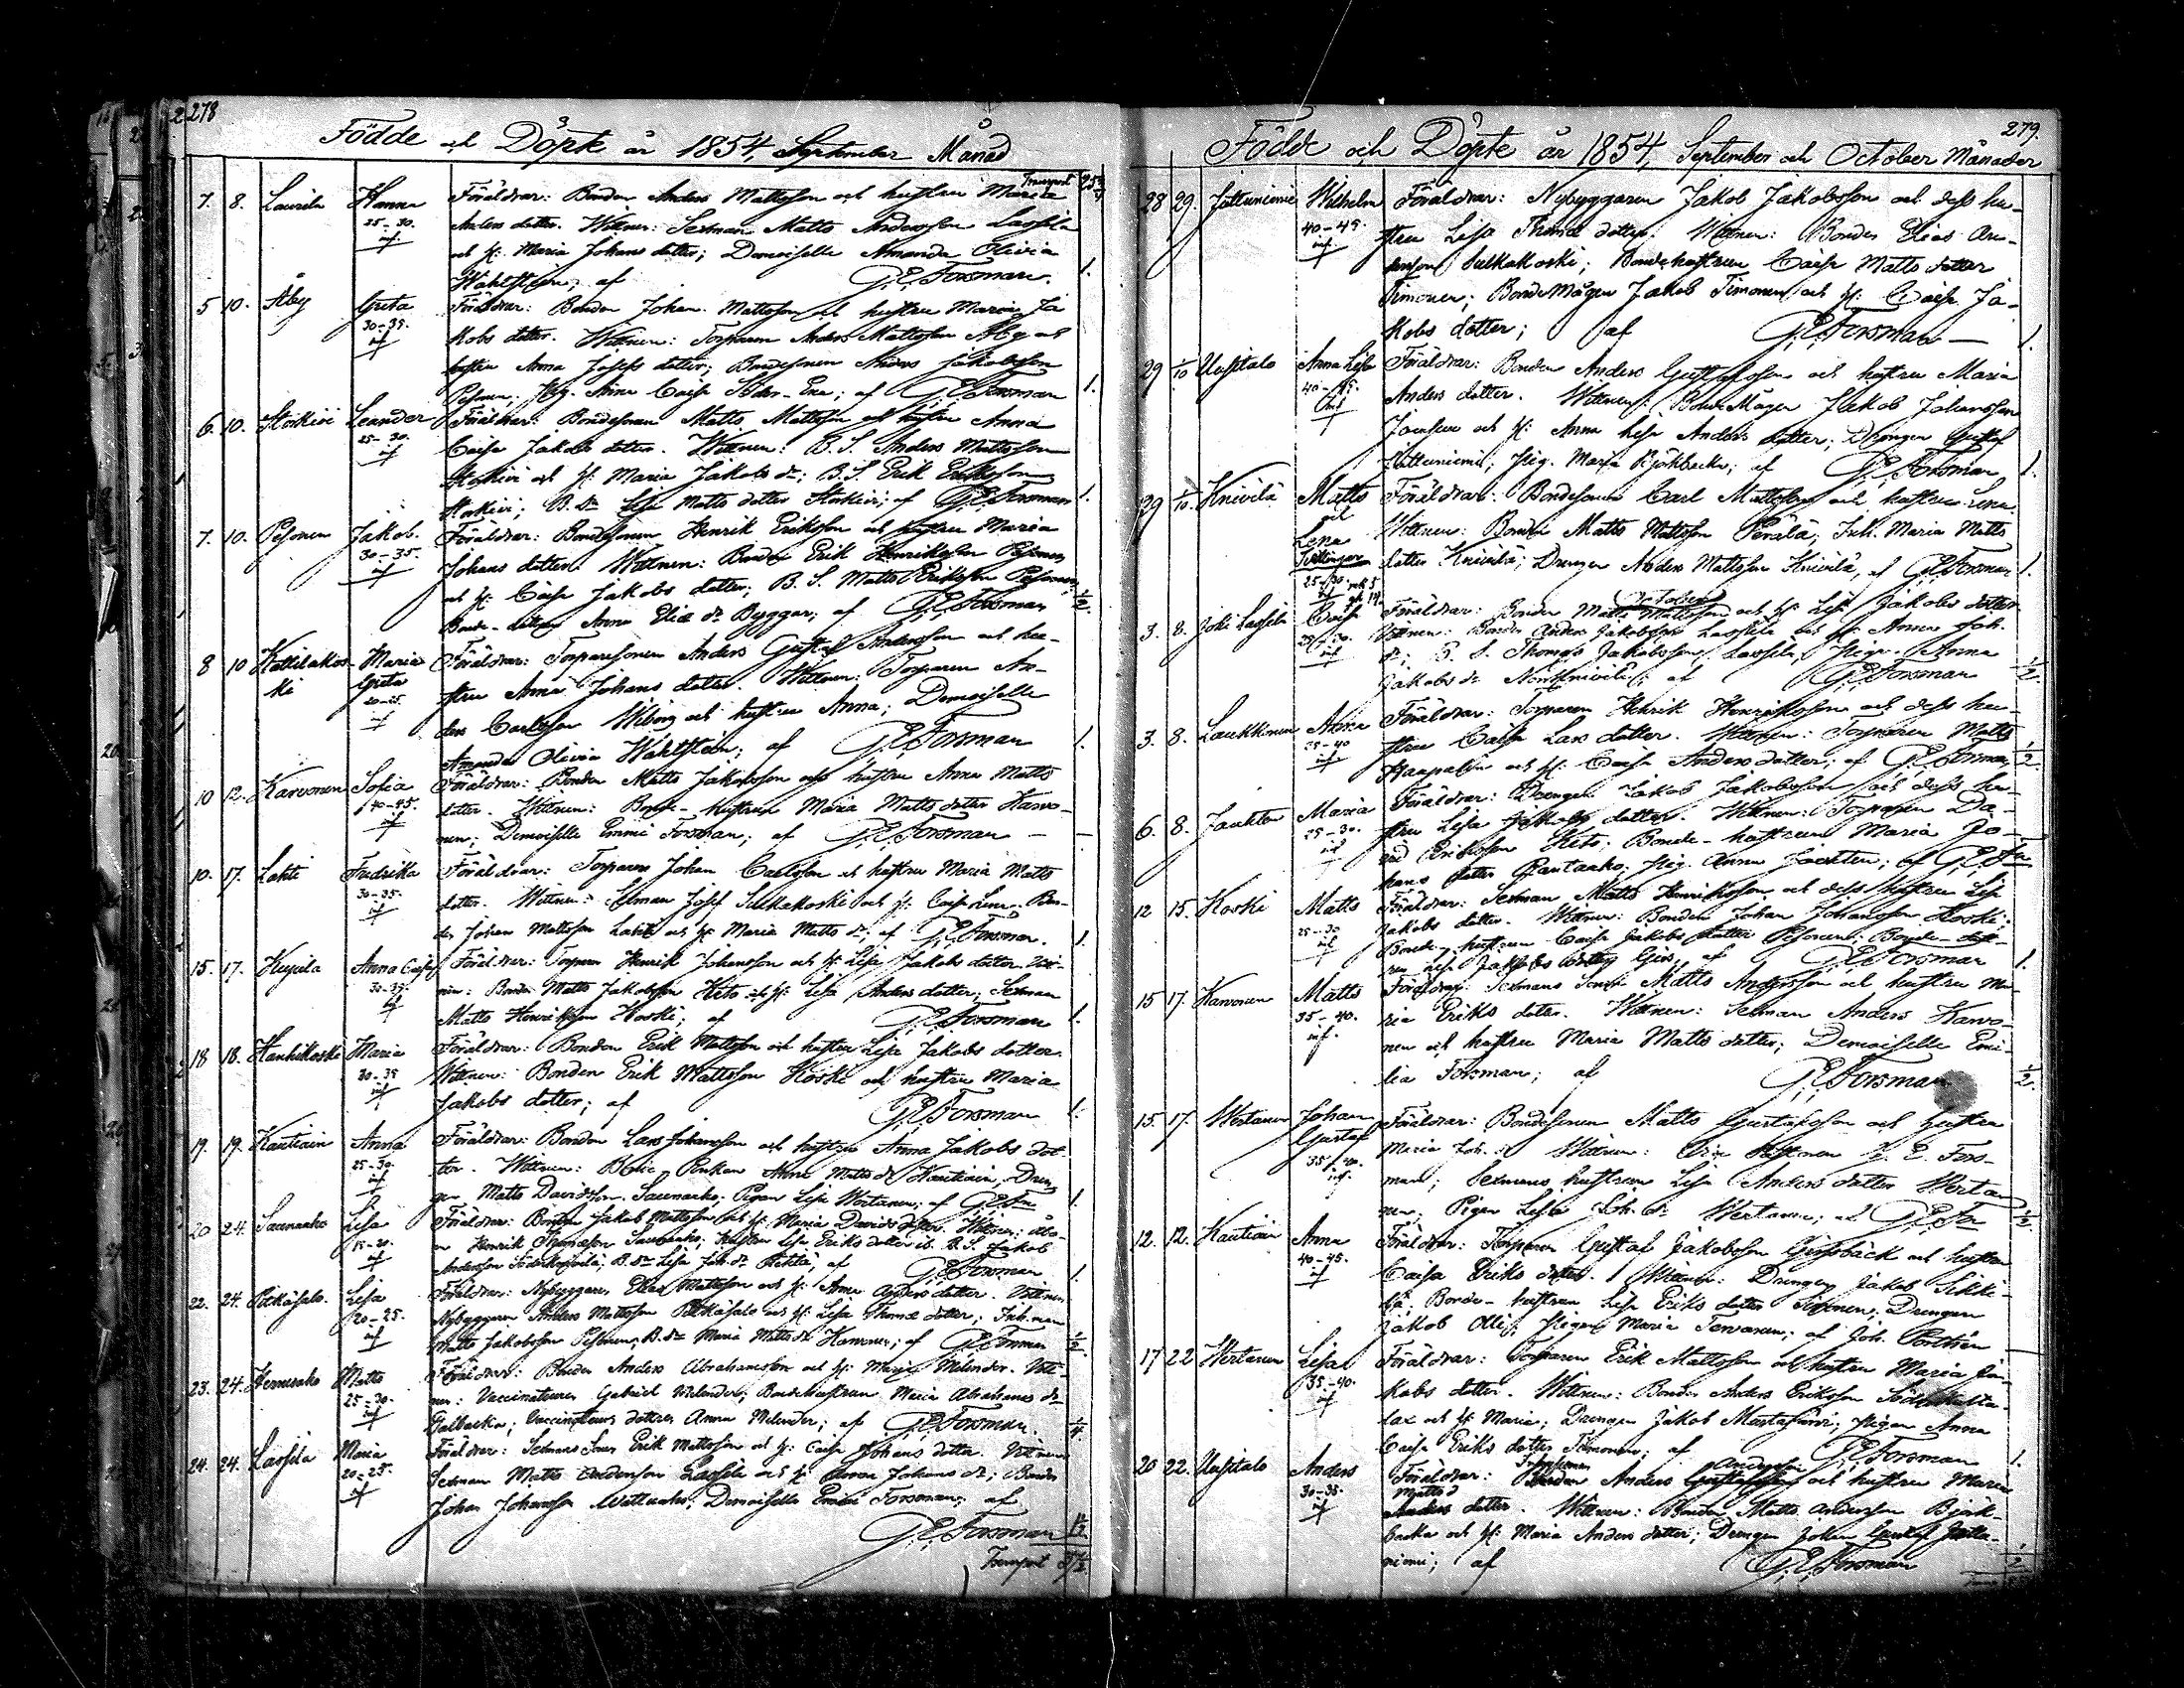 278
Födde och Döpte år 1854, September Månad
Transport
7. 8. Laurila Hanna Föräldrar: Bonden Anders Mattsson och hustru Maria
25-30. Anders dotter. Wittnen: Sexman Matts Andersson Lassila
inf och H: Maria Johans dotter; Demoiselle Amanda Olivia
Wahlstein; af G.E. Forsman. 1.
5 10. Åby Greta Föräldrar: Bonden Johan Mattsson och hustru Maria Ja-
30-35. kobs dotter. Wittnen: Torparen Anders Mattsson Åby och
inf hustru Anna Josefs dotter; Bondesonen Anders Jakobsson
Pesonen; Pig. Anna Caisa; af G.E. Forsman 1.
6. 10. Storkivi Leander Föräldrar: Bondesonen Matts Mattsson och hustru Anna
25-30. Caisa Jakobs dotter. Wittnen: B.S. Anders Mattsson
inf Storkivi och H: Maria Jakobs dr; B.S. Erik Eriksson
Storkivi; B.dr Lisa Matts dotter Storkivi; af G.E. Forsman 1.
7. 10. Pesonen Jakob. Föräldrar: Bondesonen Henrik Eriksson och hustru Maria
30-35. Johans dotter. Wittnen: Bonden Erik Henriksson Pesonen
inf och H: Caisa Jakobs dotter; B.S. Matts Eriksson Pesonen;
Bonde-dottren Anna Elias dr Byggar; af G.E. Forsman ½
8 10 Kattilakos- Maria Föräldrar: Torparesonen Anders Gustaf Andersson och hu-
ki Greta stru Anna Johans dotter. Wittnen: Torparen An-
20-25. ders Carlsson Wiborg och hustru Anna; Demoiselle
inf Amanda Olivia Wahlstein; af G.E. Forsman 1.
10 12. Karvonen Sofia Föräldrar: Bonden Matts Jakobsson och hustru Anna Matts
40-45. dotter. Wittnen: Bonde-hustrun Maria Matts dotter Karvo-
inf nen; Demoiselle Emmi Forsman; af G.E. Forsman —
10. 17. Lahti Fredrika Föräldrar: Torparen Johan Carlsson och hustru Maria Matts
30-35. dotter. Wittnen: Sexman Josef Sulkakoski och H: Caisa Lena; Bon-
inf den Johan Mattsson Lahti och H: Maria Matts dr; af G.E. Forsman. 1.
15. 17. Hupila Anna Caisa Föräldrar: Torparen Henrik Johansson och H: Lisa Jakobs dotter. Witt-
30-35. nen: Bonden Matts Jakobsson Keto och H: Lisa Anders dotter; Sexman
inf Matts Henriksson Koski; af G.E. Forsman 1.
18 18. Hanhikoski Maria Föräldrar: Bonden Erik Mattsson och hustru Lisa Jakobs dotter.
30-35 Wittnen: Bonden Erik Mattsson Koski och hustru Maria
inf Jakobs dotter; af G.E. Forsman 1.
19. 19. Kautiain Anna Föräldrar: Bonden Lars Johansson och hustru Anna Jakobs dot-
25-30. ter. Wittnen: Anna Matts dr Kautiain; Dren-
inf gen Matts Davidsson Saunanko; Pigan Lisa Wertanen; af G.E. Fn 1.
20 24. Saunanko Lisa Föräldrar: Bonden Jakob Mattsson och H: Maria Davids dotter. Wittnen: Åbo-
15-20. en Henrik Thomasson Saunanko; hustrun Lisa Eriks dotter ib. B.S. Jakob
inf Andersson; B.dr Lisa Joh. dr; af G.E. Forsman 1.
22. 24. Pitkäjalo. Lisa Föräldrar: Nybyggaren Elias Mattsson och H: Anna Anders dotter. Wittnen:
20-25. Nybyggaren Anders Mattsson Pitkäjalo och H: Lisa Thomæ dotter; Inh. man
inf Matts Jakobsson Pesonen; B.dr Maria Matts dr Karvonen; af G.E. Forsman ½
23. 24. Matts Föräldrar: Bonden Anders Abrahamsson och H: Maria Melender. Witt-
25-30. nen: Vaccinatuern Gabriel Melender; Bondehustrun Maria Abrahams dr
inf Galbacka; Vaccinateurs dottren Anna Melender; af G.E. Forsman. ¼
24. 24. Lassila Maria Föräldrar: Sexmans Son Erik Mattsson och H: Caisa Johans dotter. Wittnen:
20-25. Sexman Matts Andersson Lassila och H: Anna Johans dr; Bonden
inf Johan Johansson Mattunaho; Demoiselle Emmi Forsman; af
G.E. Forsman 1½
Transport
279.
Födde och Döpte år 1854, September och October Månader
28 29. Jättuniemi Wilhelm Föräldrar: Nybyggaren Jakob Jakobsson och dess hu-
40-45. stru Lisa Thomæ dotter. Wittnen: Bonden Elias An-
inf dersson Sulkakoski; Bondehustrun Caisa Matts dotter
Timonen; BondeMågen Jakob Timonen och H: Caisa Ja-
kobs dotter; af G.E. Forsman — 1.
29 1/10 Uusitalo Anna Lisa Föräldrar: Bonden Anders Gustafsson och hustru Maria
40-45. Anders dotter. Wittnen: BondeMågen Jakob Johansson
inf Jousuu och H: Anna Lisa Anders dotter; Drängen Gustaf
Jättuniemi; Pig. Maria Björkbacka; af G.E. Forsman 1.
29 1/10. Knivilä Matts Föräldrar: Bondesonen Carl Mattsson och hustru Lena.
och Wittnen: Bonden Matts Mattsson Perälä; Inh. Maria Matts
Lena dotter Knivilä; Drängen Anders Mattsson Knivilä, af G.E. Forsman 1.
Tvillingar
25-30.
October
3. 8. Joki Lassila Caisa Föräldrar: Bonden Matts Mattsson och H: Lisa Jakobs dotter
25-30. Wittnen: Bonden Anders Jakobsson Lassila och H: Anna Joh.
inf dr; B.S. Thomas Jakobsson Lassila, Pigan Anna
Jakobs dr Norrknivilä; af G.E. Forsman ½
3. 8. Laukkonen Anna Föräldrar: Torparen Henrik Henriksson och dess hu-
35-40 stru Caisa Lars dotter. Wittnen: Torparen Matts
inf Haapala och H: Caisa Anders dotter; af G.E. Forsman ½.
6. 8. Jaakton Maria Föräldrar: Drängen Jakob Jakobsson och dess hu-
25-30. stru Lisa Jakobs dotter. Wittnen: Torparen Da-
inf vid Eriksson Keto; Bonde-hustrun Maria Jo-
hans dotter Rantaaho; Pig. Anna Jaakton; af G.E. Fn
12 15. Koski Matts Föräldrar: Sexman Matts Henriksson och dess hustru Lisa
25-30 Jakobs dotter. Wittnen: Bonden Johan Johansson Koski;
inf Bonde-hustrun Caisa Jakobs dotter Pesonen; Bonde-dott-
ren Lisa Jakobs dotter; af G.E. Forsman 1.
15 17. Karvonen Matts Föräldrar: Sexmans Sonen Matts Andersson och hustru Ma-
35-40. ria Eriks dotter. Wittnen: Sexman Anders Karvo-
inf. nen och hustru Maria Matts dotter; Demoiselle Emi-
lia Forsman; af G.E. Forsman ½.
15. 17. Wertanen Johan Föräldrar: Bondesonen Matts Gustafsson och hustru
Gustaf Maria Joh. dr Wittnen: G.E. Fors-
35-40. man; Sexmans hustrun Lisa Anders dotter Wertan-
inf. nen; Pigan Lisa Joh. dr Wertanen; af G.E. Fn ½
12. 12. Kautiain Anna Föräldrar: Torparen Gustaf Jakobsson Girsbäck och hustru
40-45. Caisa Eriks dotter. Wittnen: Drängen Jakob Sikki-
inf lä; Bonde-hustrun Lisa Eriks dotter Simonen; Drängen
Jakob Olli; Pigan Maria Tervonen; af Joh. Portin —
17 22 Wertanen Lisa Föräldrar: Torparen Erik Mattsson och hustru Maria Ja-
35-40. kobs dotter. Wittnen: Bonden Anders Eriksson
inf och H: Maria; Drängen Jakob; Pigan Anna
Caisa Eriks dotter Timonen; af G.E. Forsman 1.
20 22. Uusitalo Anders Föräldrar: Anders Andersson och hustru Maria
30-35. Matts dotter. Wittnen: Bonden Matts Andersson Björk-
inf backa och H: Maria Anders dotter; Drängen Johan Gustaf Jättu-
niemi; af G.E. Forsman ½